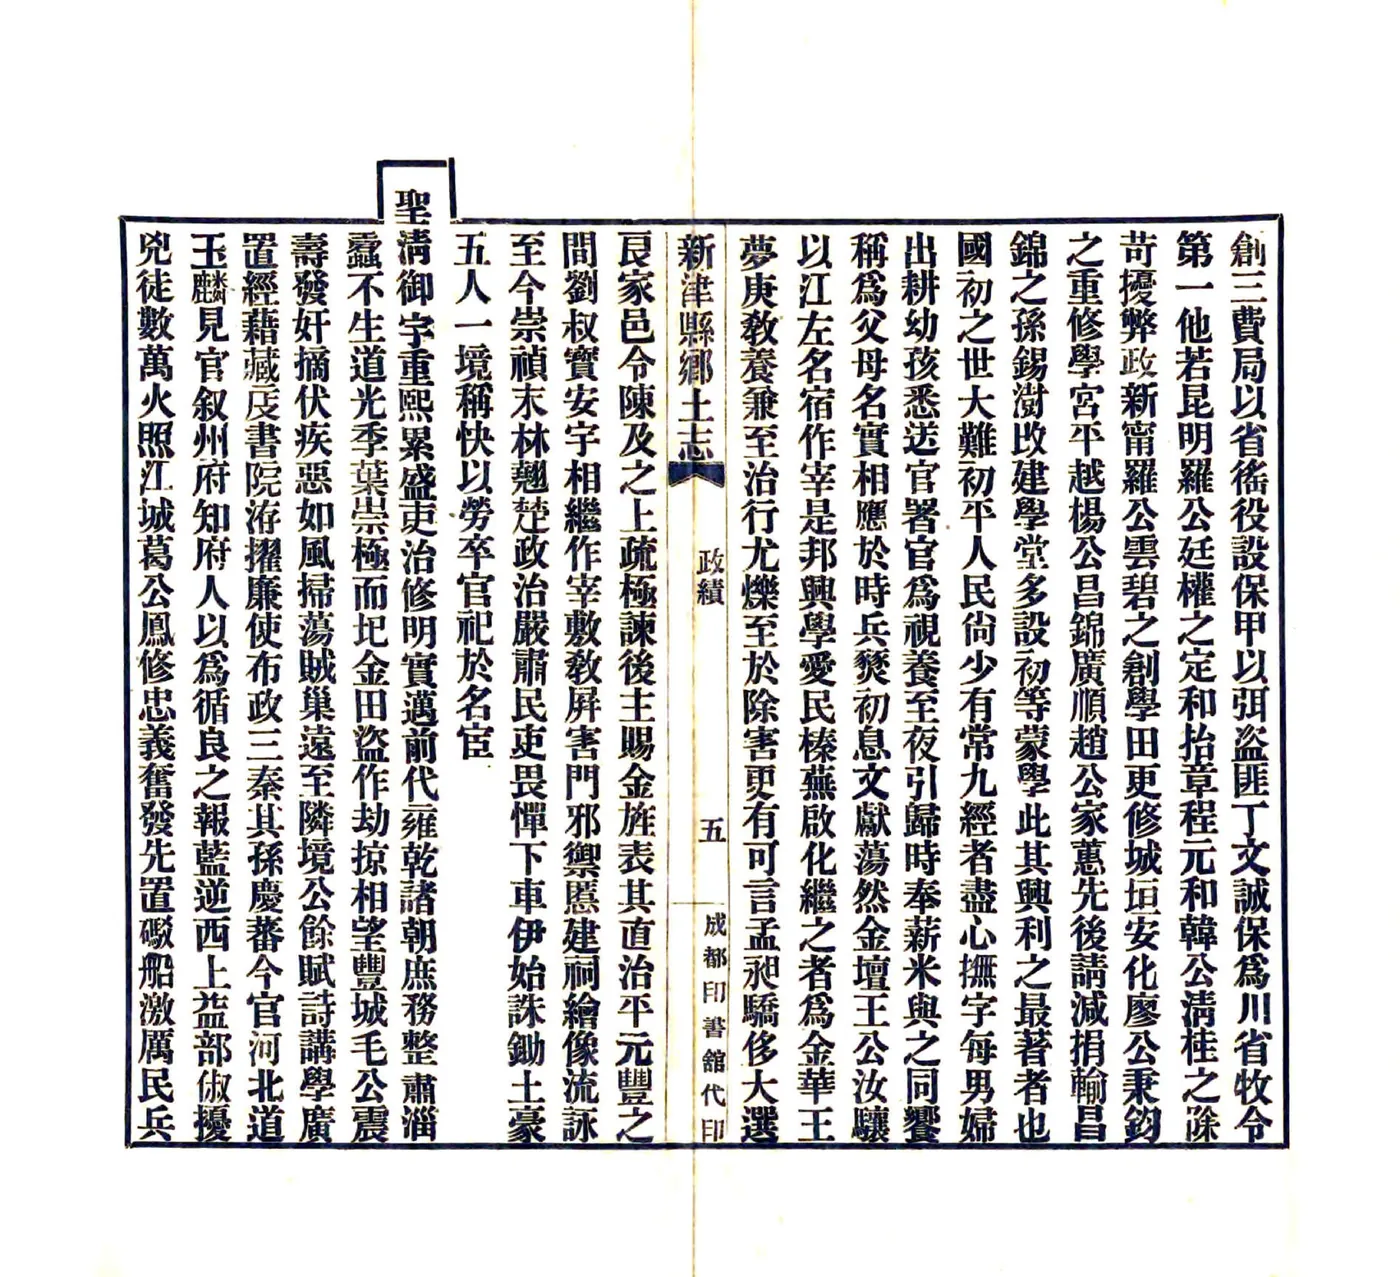 創三費局以省徭役設保甲以弭盜匪丁文誠保爲川省牧令
第一他若昆明羅公廷權之定和抬章程元和韓公淸桂之除
苛擾弊政新甯羅公雲碧之創學田更修城垣安化廖公秉鈞
之重修學宮平越楊公昌錦廣順趙公家蕙先後請減捐輸昌
錦之孫錫澍改建學堂多設初等蒙學此其興利之最著者也
國初之世大難初平人民尙少有常九經者盡心撫字每男婦
出耕幼孩悉送官署官爲視養至夜引歸時奉薪米與之同饗
稱爲父母名實相應於時兵燹初息文獻蕩然金壇王公汝驤
以江左名宿作宰是邦興學愛民榛蕪啟化繼之者爲金華王
夢庚敎養兼至治行尤爍至於除害更有可言孟昶驕侈大選
新津縣鄉土志
政績
五
成都印書館代印
良家邑令陳及之上疏極諫後主賜金旌表其直治平元豐之
間劉叔寶安字相繼作宰敷敎屛害門邪禦慝建祠繪像流詠
至今崇禎末林翹楚政治嚴肅民吏畏憚下車伊始誅鋤土豪
五人一境稱快以勞卒官祀於名宦
聖淸御宇重熙累盛吏治修明實邁前代雍乾諸朝庶務整肅淄
蠹不生道光季葉祟極而圮金田盜作劫掠相望豐城毛公震
壽發奸摘伏疾惡如風掃蕩賊巢遠至隣境公餘賦詩講學廣
置經藉藏庋書院洊擢廉使布政三秦其孫慶蕃今官河北道
玉麟見官叙州府知府人以爲循良之報藍逆西上益部俶擾
兇徒數萬火照江城葛公鳳修忠義奮發先置礮船激厲民兵